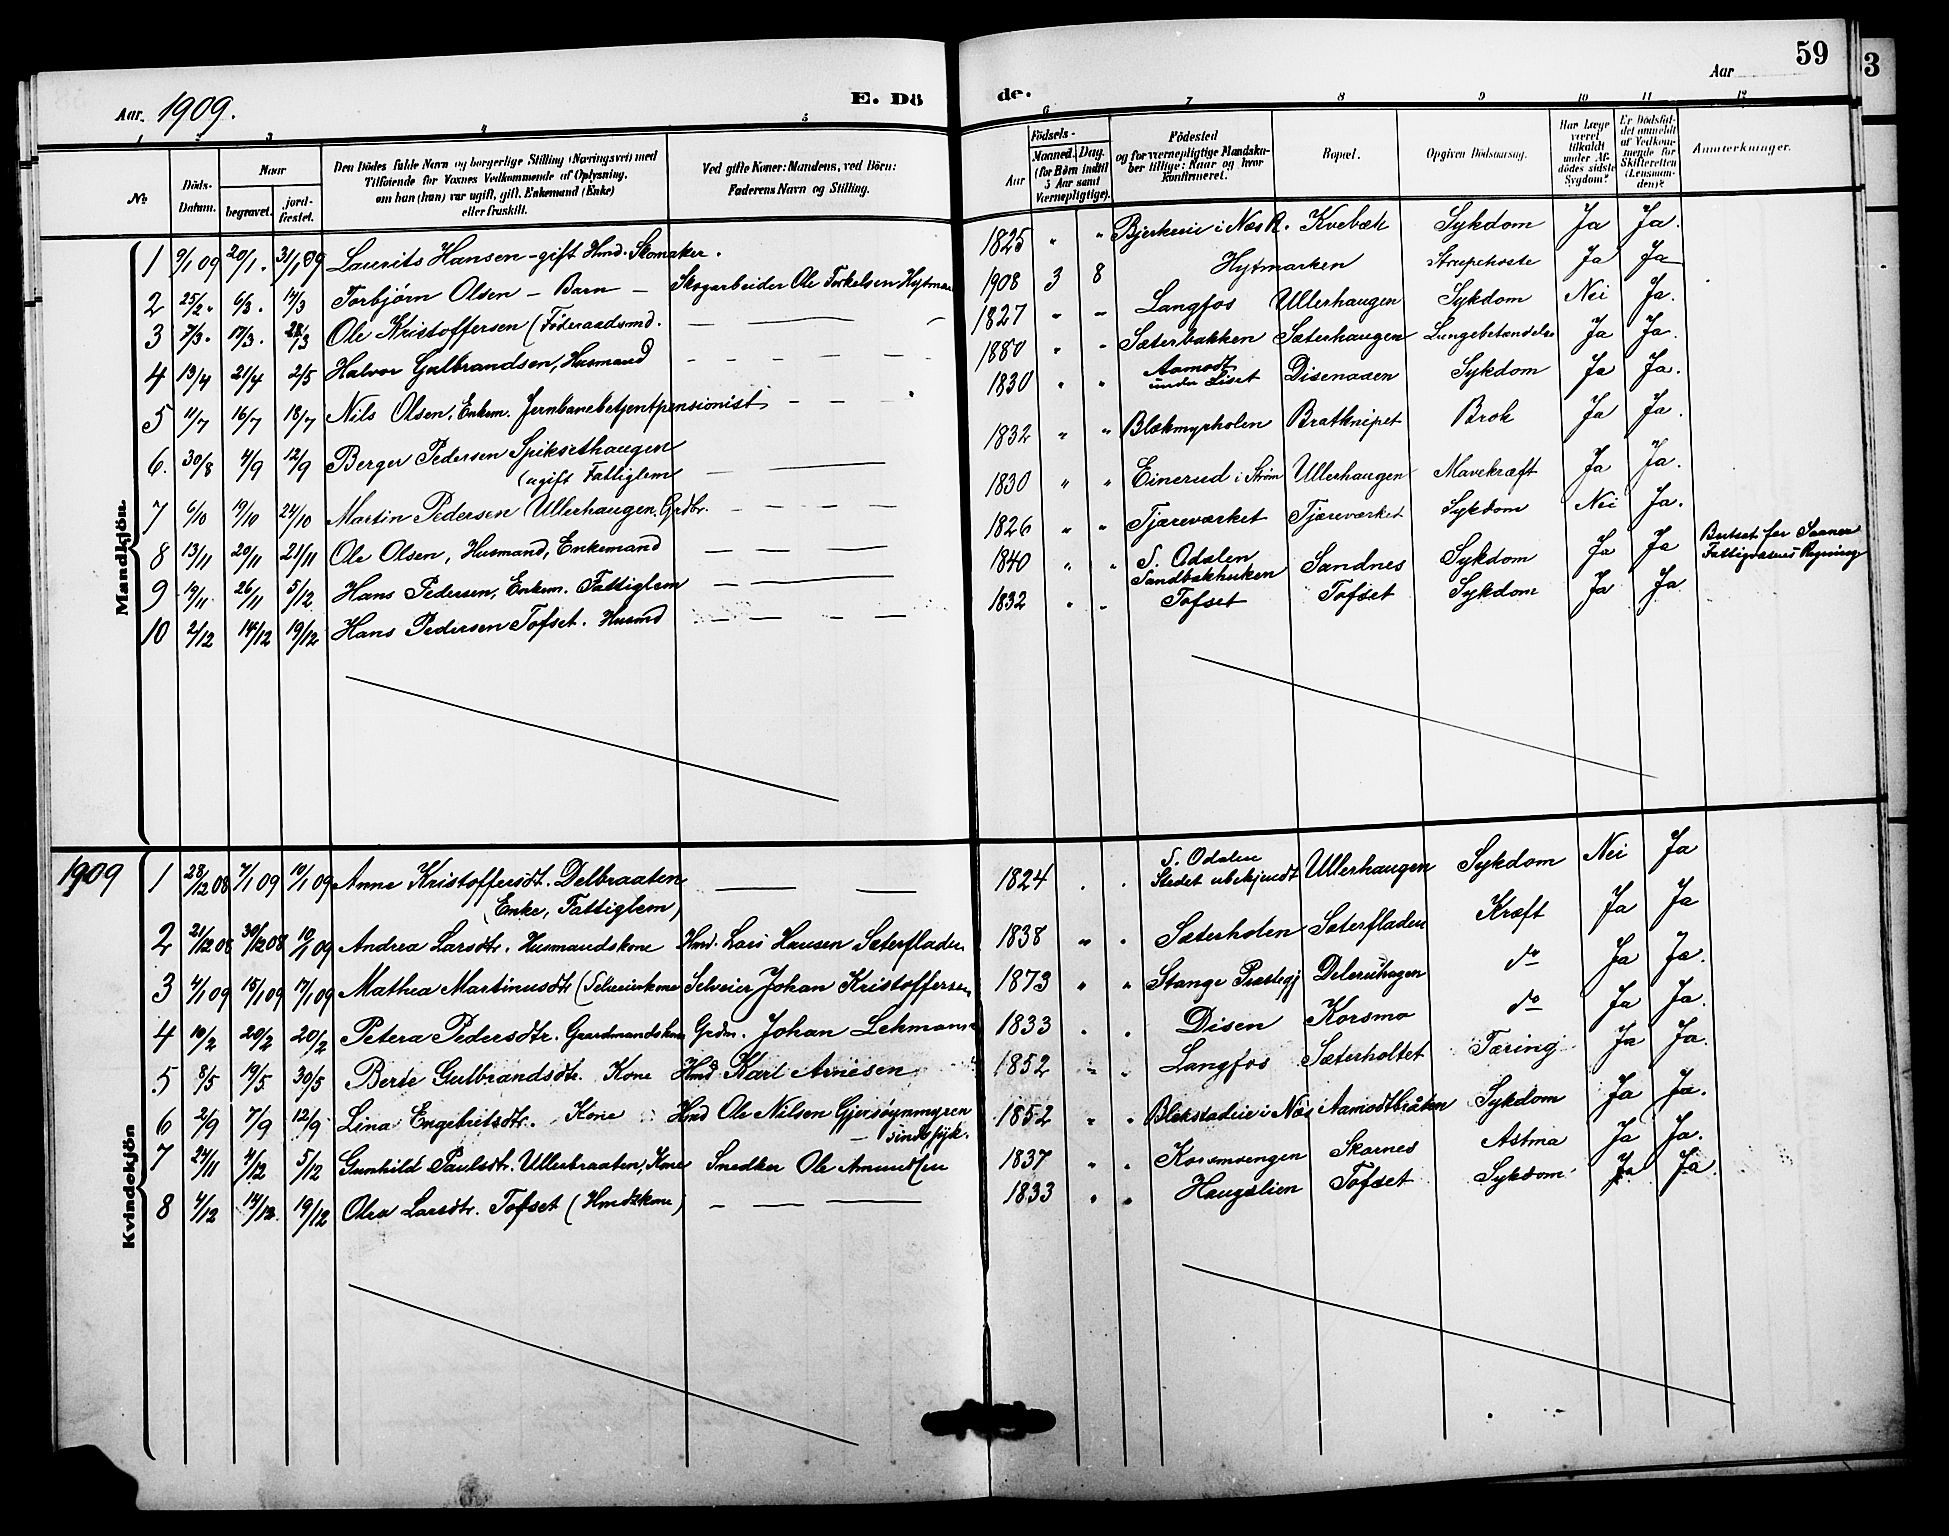 59
3
Aar
Aar. 1909.
E. Dö de.
1 2 3 4 5 6 7 8 9 10 11 12
№
Döds-Datum.
Naar
begravet.
jord-fæstet.
Den Dödes fulde Navn og borgerlige Stilling (Næringsvei) med
Tilföiende for Voxnes Vedkommende af Oplysning,
om han (hun) var ugift, gift, Enkemand (Enke)
eller fraskilt.
Ved gifte Koner: Mandens, ved Börn:
Faderens Navn og Stilling.
Födsels-
Aar
Maaned. Dag.
(for Börn indtil
5 Aar samt
Værnepligtige).
Födested
og for værnepligtige Mandska-
ber tillige: Naar og hvor
konfirmeret.
Bopæl.
Opgiven Dödsaarsag.
Har Læge
været
tilkaldt
under Af-
dödes sidste
Sygdom?
Er Dödsfal-
det anmeldt
af Vedkom-
mende for
Skifteretten
(Lensman-
den)?
Anmærkninger.
Mandkjön.
1 9/1 09 20/1. 31/1 09 Laurits Hansen - gift Hmd. Skomaker. 1825 " " Bjerkeeie i Næs R. Kvebæk Sykdom Ja Ja.
2 25/2 " 6/3. 14/3 Torbjørn Olsen - Barn - Skogarbeider Ole Torkelsen Hytmar 1908 3 8 Hytmarken Strupehoste Ja Ja
3 7/3. 17/3. 28/3 Ole Kristoffersen (Føderaadsmd. 1827 " " Langfos Ullerhaugen Sykdom Nei Ja.
4 13/4 21/4 2/5 Halvor Gulbrandsen, Husmand 1880 " " Sæterbakken Sæterhaugen Lungebetændelse Ja Ja.
5 11/7 16/7 18/7 Nils Olsen, Enkem. Jernbanebetjentpensionist 1830 " " Aamodt under Liset Disenaaen Sykdom Ja Ja.
6. 30/8 4/9 12/9 Berger Pedersen Spiksethaugen 1832 " " Blækmyrholen Bratknipet Brok Ja Ja.
(ugift Fattiglem
7 6/10 19/10 24/10 Martin Pedersen Ullerhaugen. Grdbr. 1830 " " Einerud i Strøm Ullerhaugen Mavekræft Ja Ja.
8 13/11 20/11 21/11 Ole Olsen, Husmand, Enkemand 1826 " " Tjæreværket Tjæreværket Sykdom Nei Ja.
9 19/11 26/11 5/12 Hans Pedersen, Enkem. Fattiglem 1840 " " S. Odalen Sandbakhuken Sandnes Sykdom Ja Ja Fattigvæsens Regning
10 2/12 14/12 19/12 Hans Pedersen Tofset. Husmd 1832 " " Tofset Tofset Sykdom Ja Ja
1909
Kvindekjön
1 28/12 08 7/1 09 10/1 09 Anne Kristoffersdt. Delbraaten 1824 . . S. Odalen Stedet ubekjendt Ullerhaugen Sykdom Nei Ja
(Enke, Fattiglem)
2 21/12 08 30/12 08 10/1 09 Andrea Larsdtr. Husmandskone Hmd. Lars Hansen Sæterfladen 1838 " . Sæterholen Sæterfladen Kræft Ja Ja
3 4/1 09 15/1 09 17/1 09 Mathea Martinusdt (Selveierkone Selveier Johan Kristoffersen 1873 " " Stange Præstegj Ja Ja. do
4 10/2 20/2 20/2 Petera Pedersdtr. Gaardmandskone Grdm. Johan Lehmann 1833 . . Disen Korsmo do Ja Ja.
5 8/5 19/5 30/5 Berte Gulbrandsdtr. Kone Hmd Karl Arnesen 1852 " " Langfos Sæterholtet Tæring Ja Ja.
6 2/9 7/9 12/9 Lina Engebretsdtr. Kone Hmd Ole Nilsen Gjersøynmyren 1852 " " Blekstadeie i Næs Aamodtbråten Sykdom Ja Ja.
- sindssyk.
7 24/11 4/12 5/12 Gunhild Paulsdtr. Ullerbraaten, Kone Snedker Ole Amundsen 1837 " " Korsmoengen Skarnes Astma Ja Ja.
8 4/12 14/12 19/12 Olea Larsdtr. Tofset (Hmdskone) 1833 " " Haugslien Tofset Sykdom Ja Ja